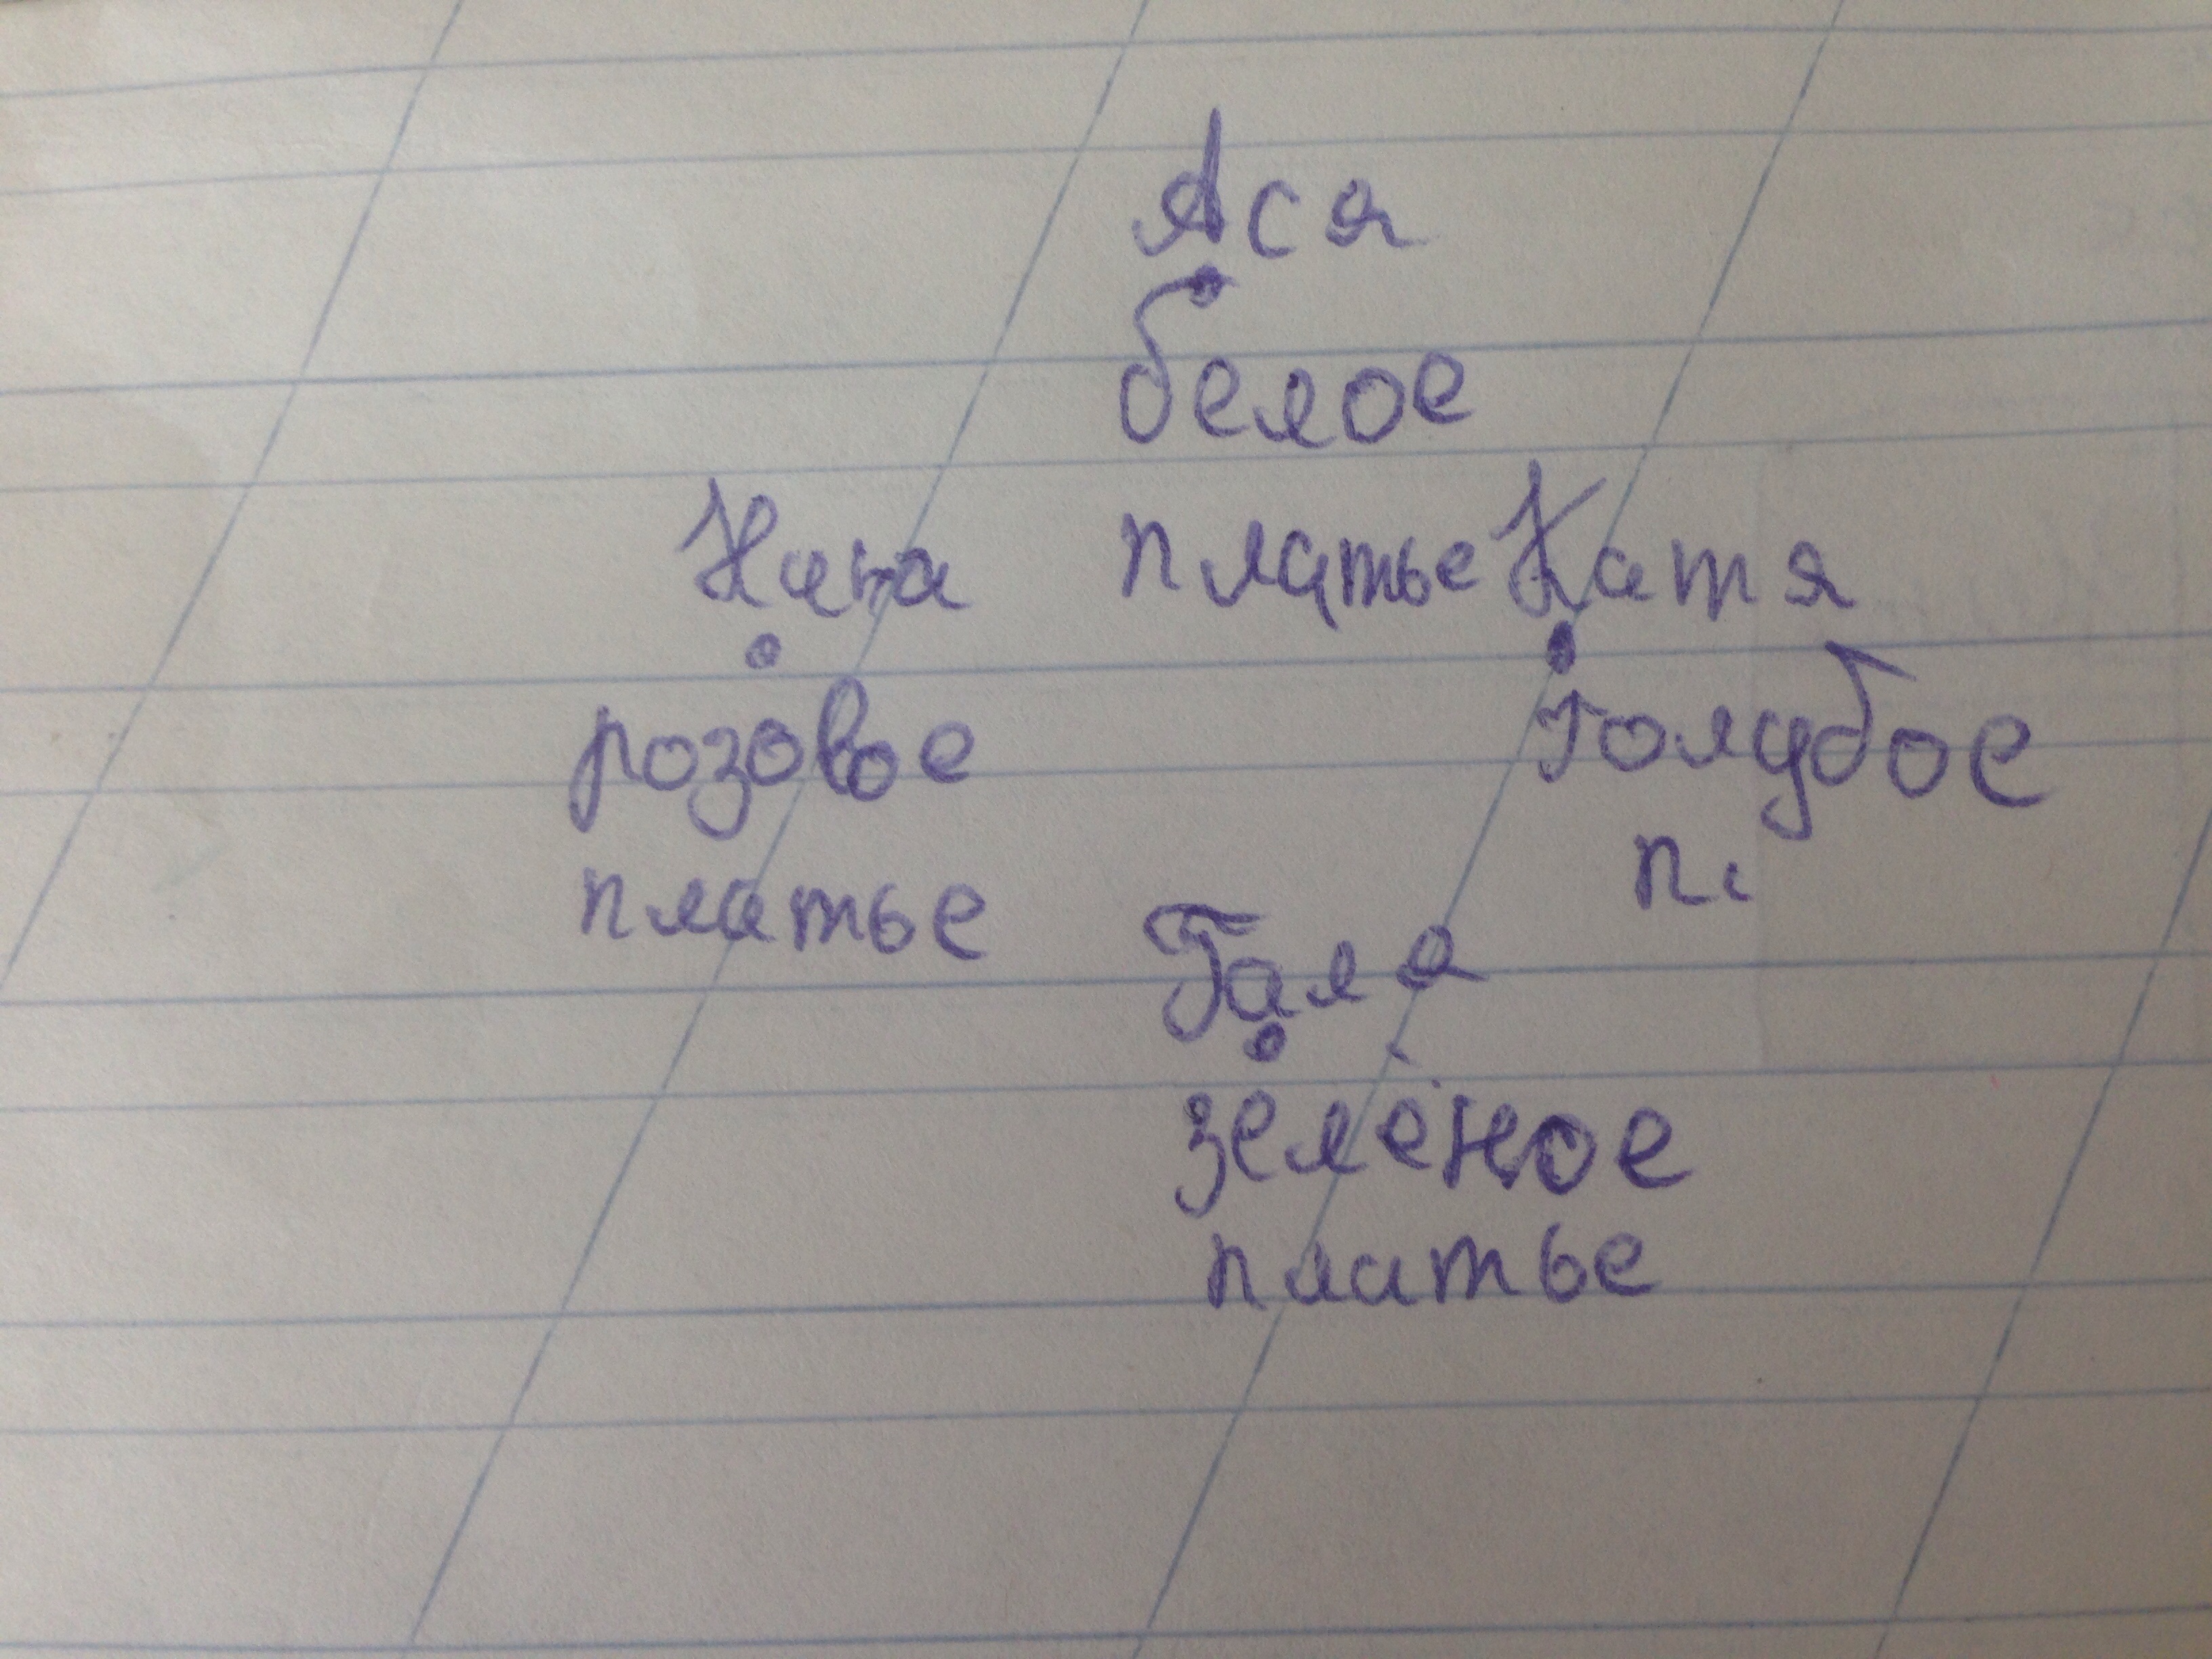 Ася
белое
Нина платье Катя
розовое голубое
платье п.
Галя
зелёное
платье